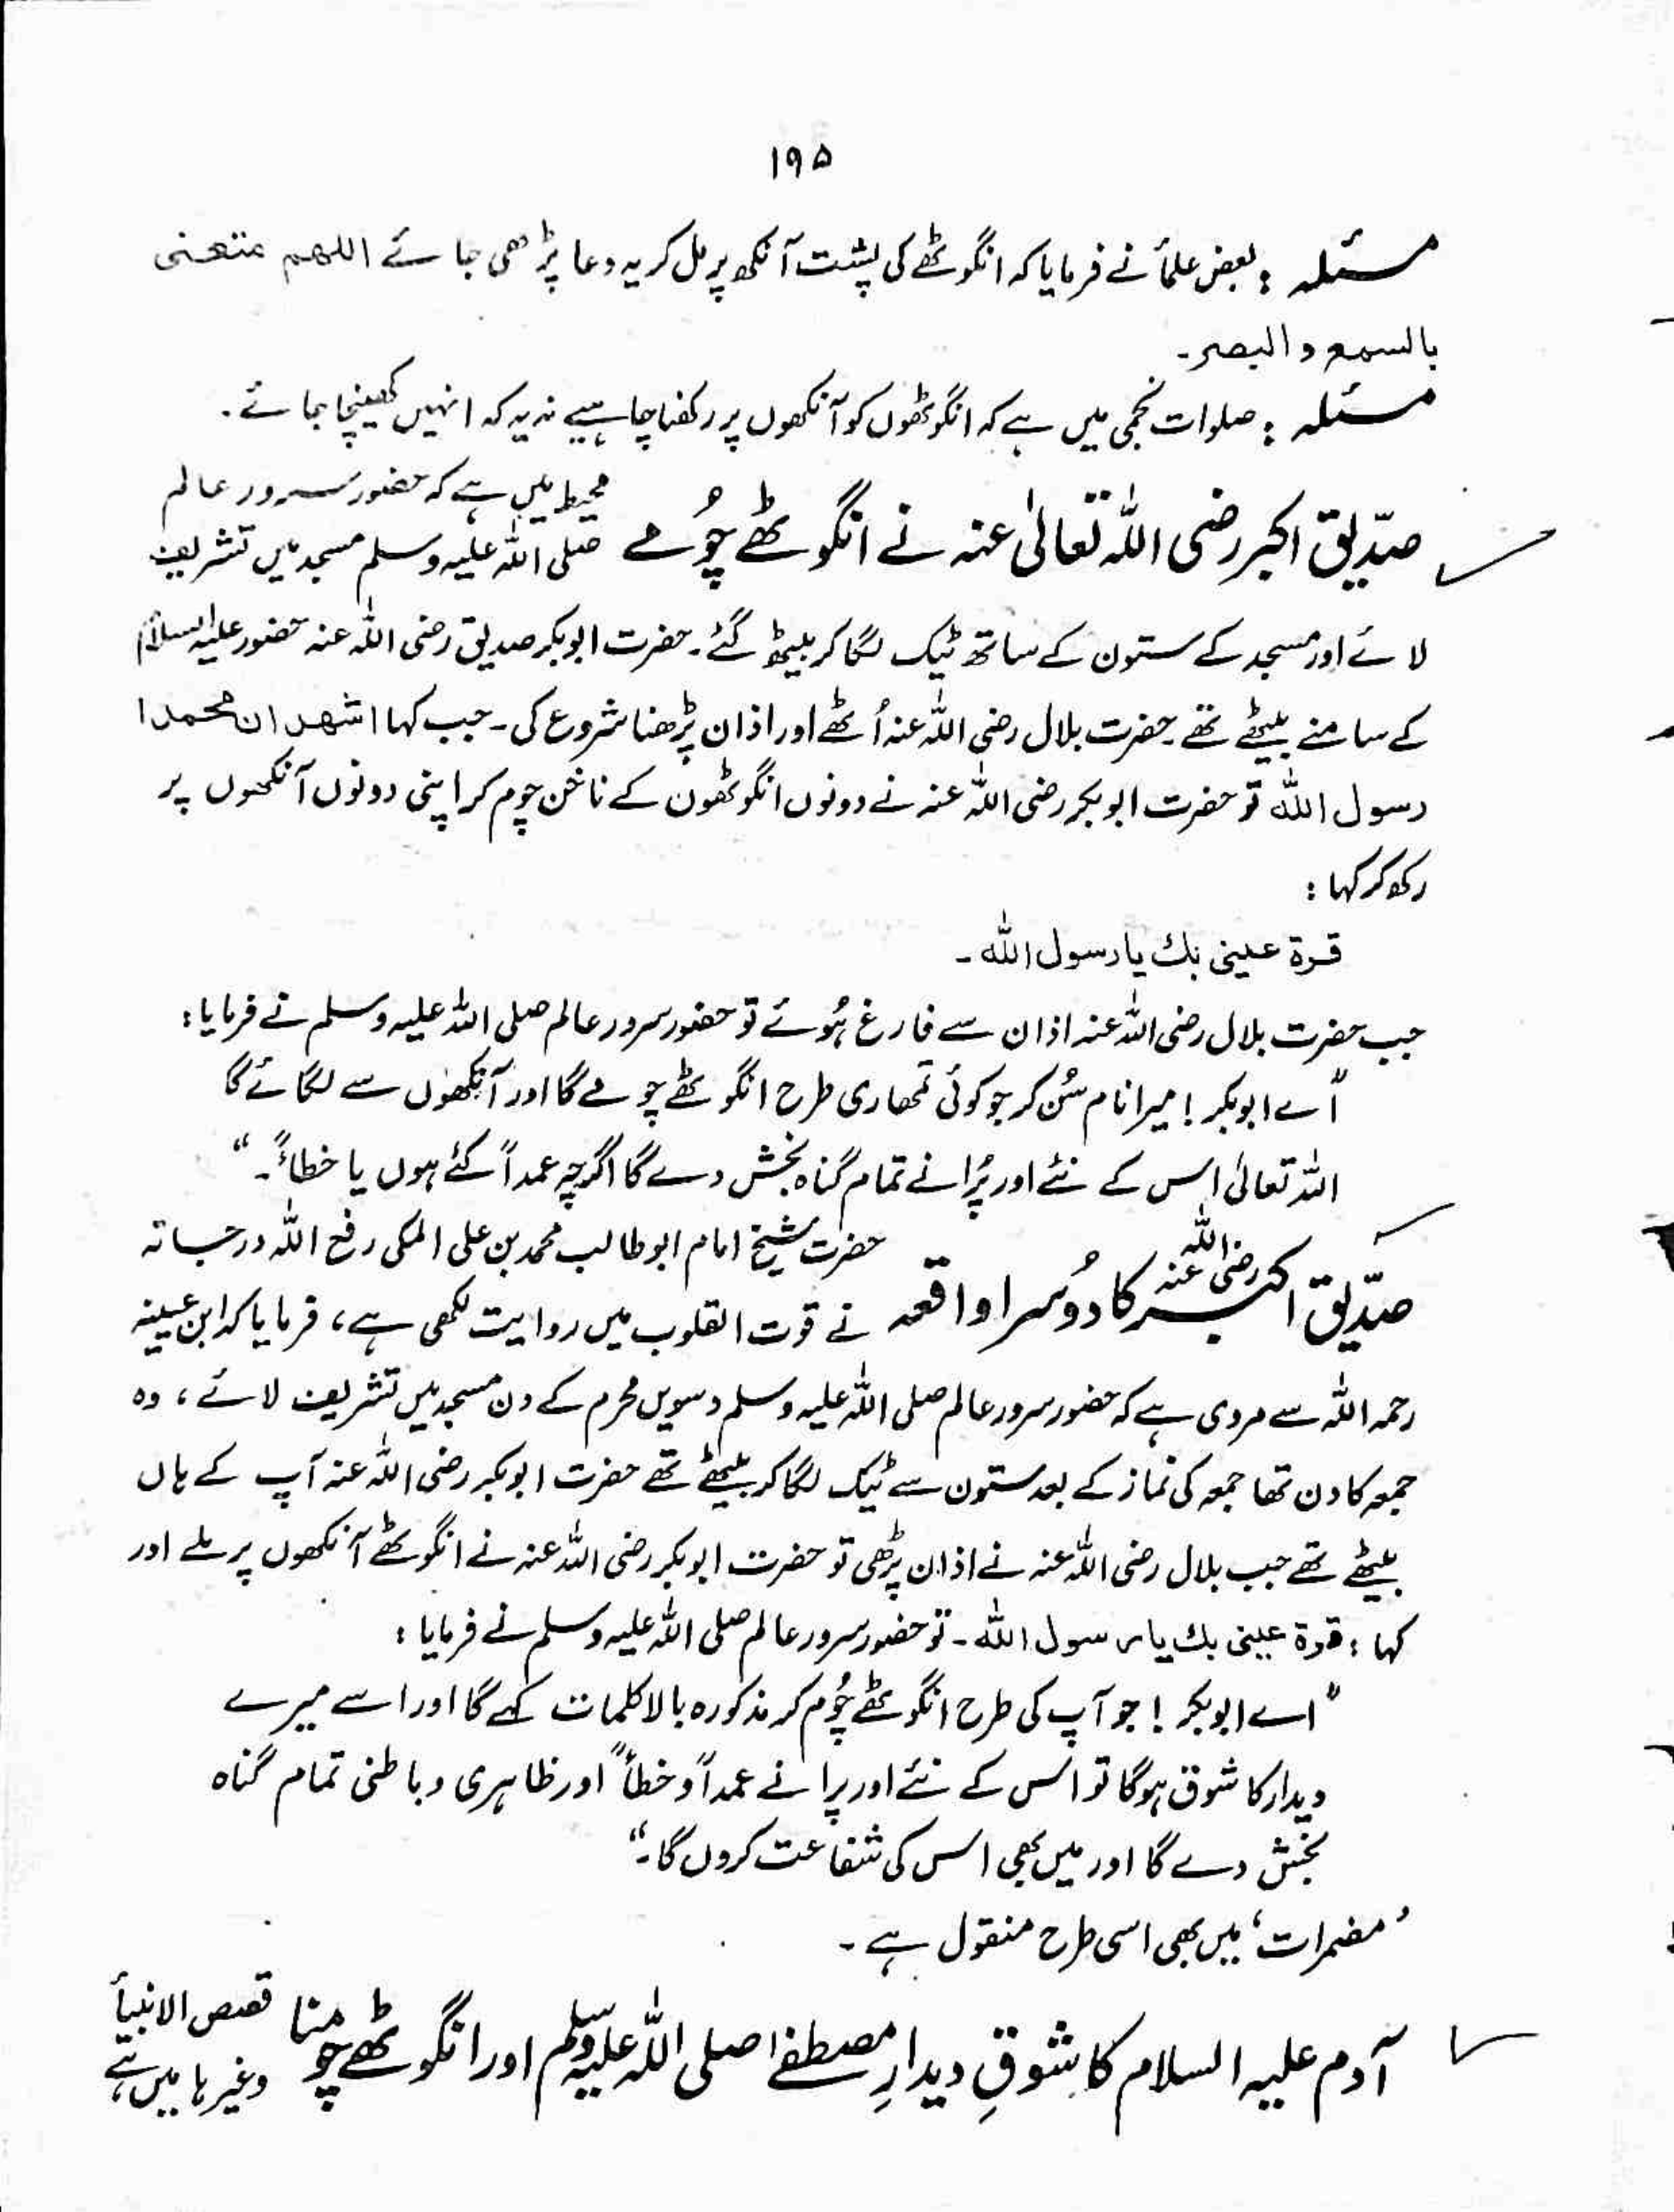 ۱۹۵
مسئلہ : بعض علمأ نے فرمایا کہ انگوٹھے کی پشت آنکھ پر مل کر یہ دعا پڑھی جائے اللهم متعنی
بالسمع و البصر۔
مسئلہ : صلوات نجمی میں ہے کہ انگوٹھوں کو آنکھوں پر رکھنا چاہیے نہ یہ کہ انہیں کھینچا جائے۔
صدّیق اکبر رضی اللہ تعالیٰ عنہ نے انگوٹھے چُومے محیط میں ہے کہ حضور سرور عالم
صلی اللہ علیہ وسلم مسجد میں تشریف
لائے اور مسجد کے ستون کے ساتھ ٹیک لگا کر بیٹھ گئے۔ حضرت ابوبکر صدیق رضی اللہ عنہ حضور علیہ السلام
کے سامنے بیٹھے تھے۔ حضرت بلال رضی اللہ عنہ اُٹھے اور اذان پڑھنا شروع کی۔ جب کہا اشهد ان محمدا
رسول اللہ تو حضرت ابوبکر رضی اللہ عنہ نے دونوں انگوٹھوں کے ناخن چوم کر اپنی دونوں آنکھوں پر
رکھ کر کہا :
قرة عینی بك یا رسول اللہ ۔
جب حضرت بلال رضی اللہ عنہ اذان سے فارغ ہُوئے تو حضور سرور عالم صلی اللہ علیہ وسلم نے فرمایا :
"اے ابوبکر ! میرا نام سُن کر جو کوئی تمھاری طرح انگوٹھے چومے گا اور آنکھوں سے لگائے گا
اللہ تعالیٰ اس کے نئے اور پُرانے تمام گناہ بخش دے گا اگرچہ عمداً کئے ہوں یا خطاءً۔"
صدّیق اکبر رضی اللہ عنہ کا دُوسرا واقعہ حضرت شیخ امام ابوطالب محمد بن علی المکی رفع اللہ درجاتہ
نے قوت القلوب میں روایت لکھی ہے، فرمایا کہ ابن عیینہ
رحمہ اللہ سے مروی ہے کہ حضور سرور عالم صلی اللہ علیہ وسلم دسویں محرم کے دن مسجد میں تشریف لائے، وہ
جمعہ کا دن تھا جمعہ کی نماز کے بعد ستون سے ٹیک لگا کر بیٹھے تھے حضرت ابوبکر رضی اللہ عنہ آپ کے ہاں
بیٹھے تھے جب بلال رضی اللہ عنہ نے اذان پڑھی تو حضرت ابوبکر رضی اللہ عنہ نے انگوٹھے آنکھوں پر ملے اور
کہا : قرة عینی بك یا رسول اللہ ۔ تو حضور سرور عالم صلی اللہ علیہ وسلم نے فرمایا :
"اے ابوبکر ! جو آپ کی طرح انگوٹھے چُوم کر مذکورہ بالا کلمات کہے گا اور اسے میرے
دیدار کا شوق ہوگا تو اس کے نئے اور پرانے عمداً و خطأً اور ظاہری و باطنی تمام گناہ
بخش دے گا اور میں بھی اس کی شفاعت کروں گا۔"
'مضمرات' میں بھی اسی طرح منقول ہے ۔
آدم علیہ السلام کا شوقِ دیدارِ مصطفےٰ صلی اللہ علیہ وسلم اور انگوٹھے چومنا قصص الانبیأ
وغیرہا میں ہے،